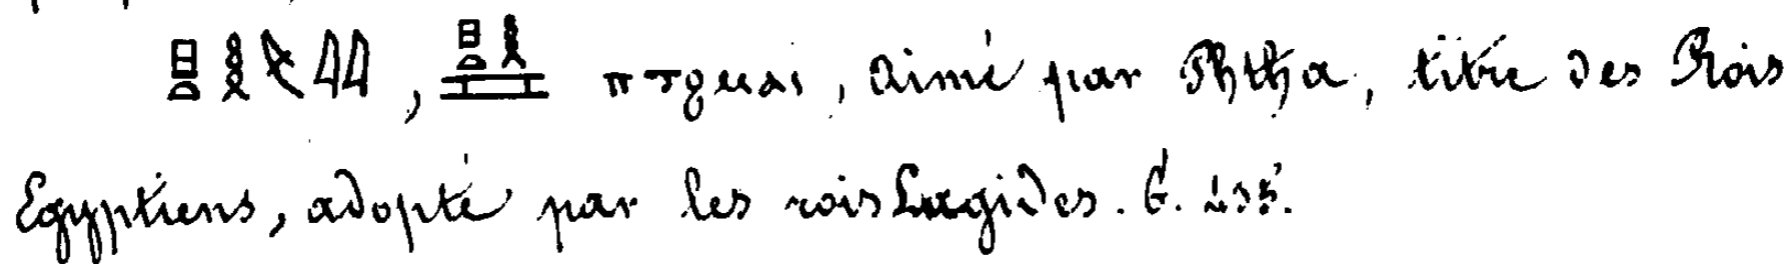 𓊪𓏏𓎛𓌸𓇌, 𓊪𓏏𓎛𓈘 πτϩⲙⲁⲓ, aimé par Phtha, titre des Rois
Egyptiens, adopté par les rois Lagides. G.